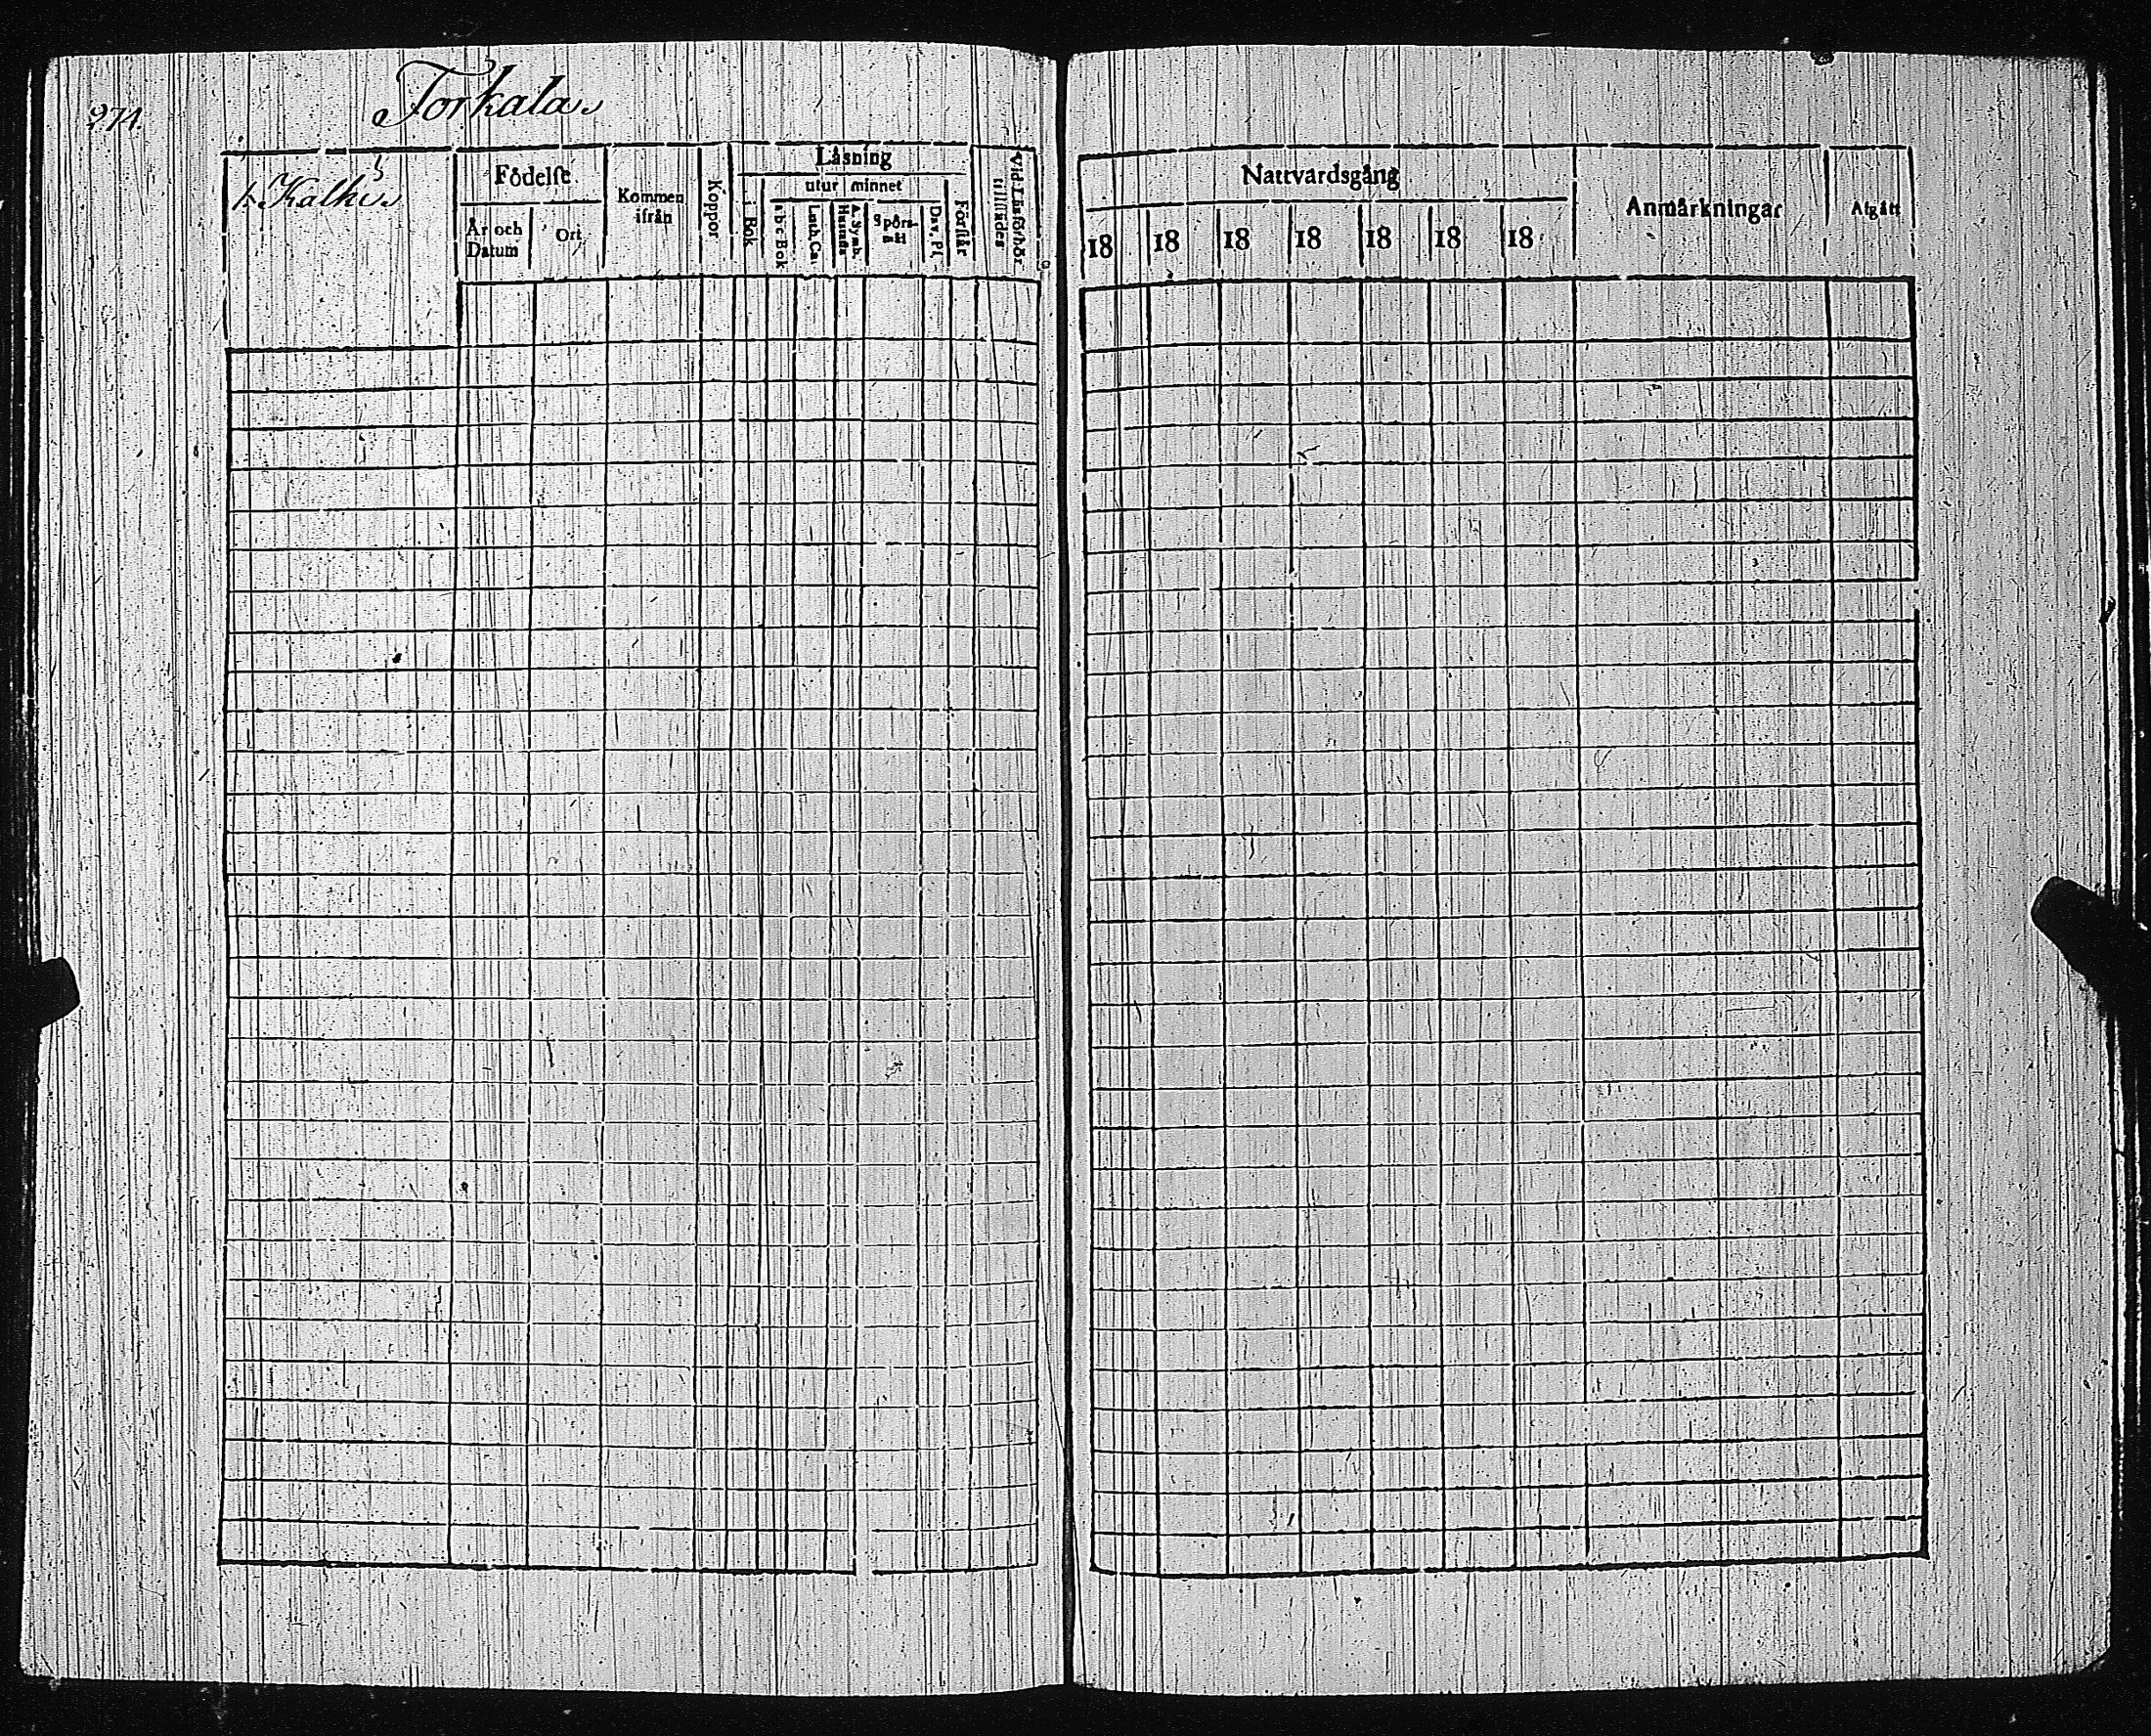 274.
Torkala
1. Kalhi
Födelse
År och Datum
Ort
Kommen ifrån
Koppor
Läsning
i Bok
utur minnet
a b c Bok
Luth. Ca.
A. Symb. Hustafla
Spörsmål
Dav. Ps.
Förstår
Vid Läsförhör tillstädes
Nattvardsgång
18 18 18 18 18 18 18
Anmärkningar
Afgått